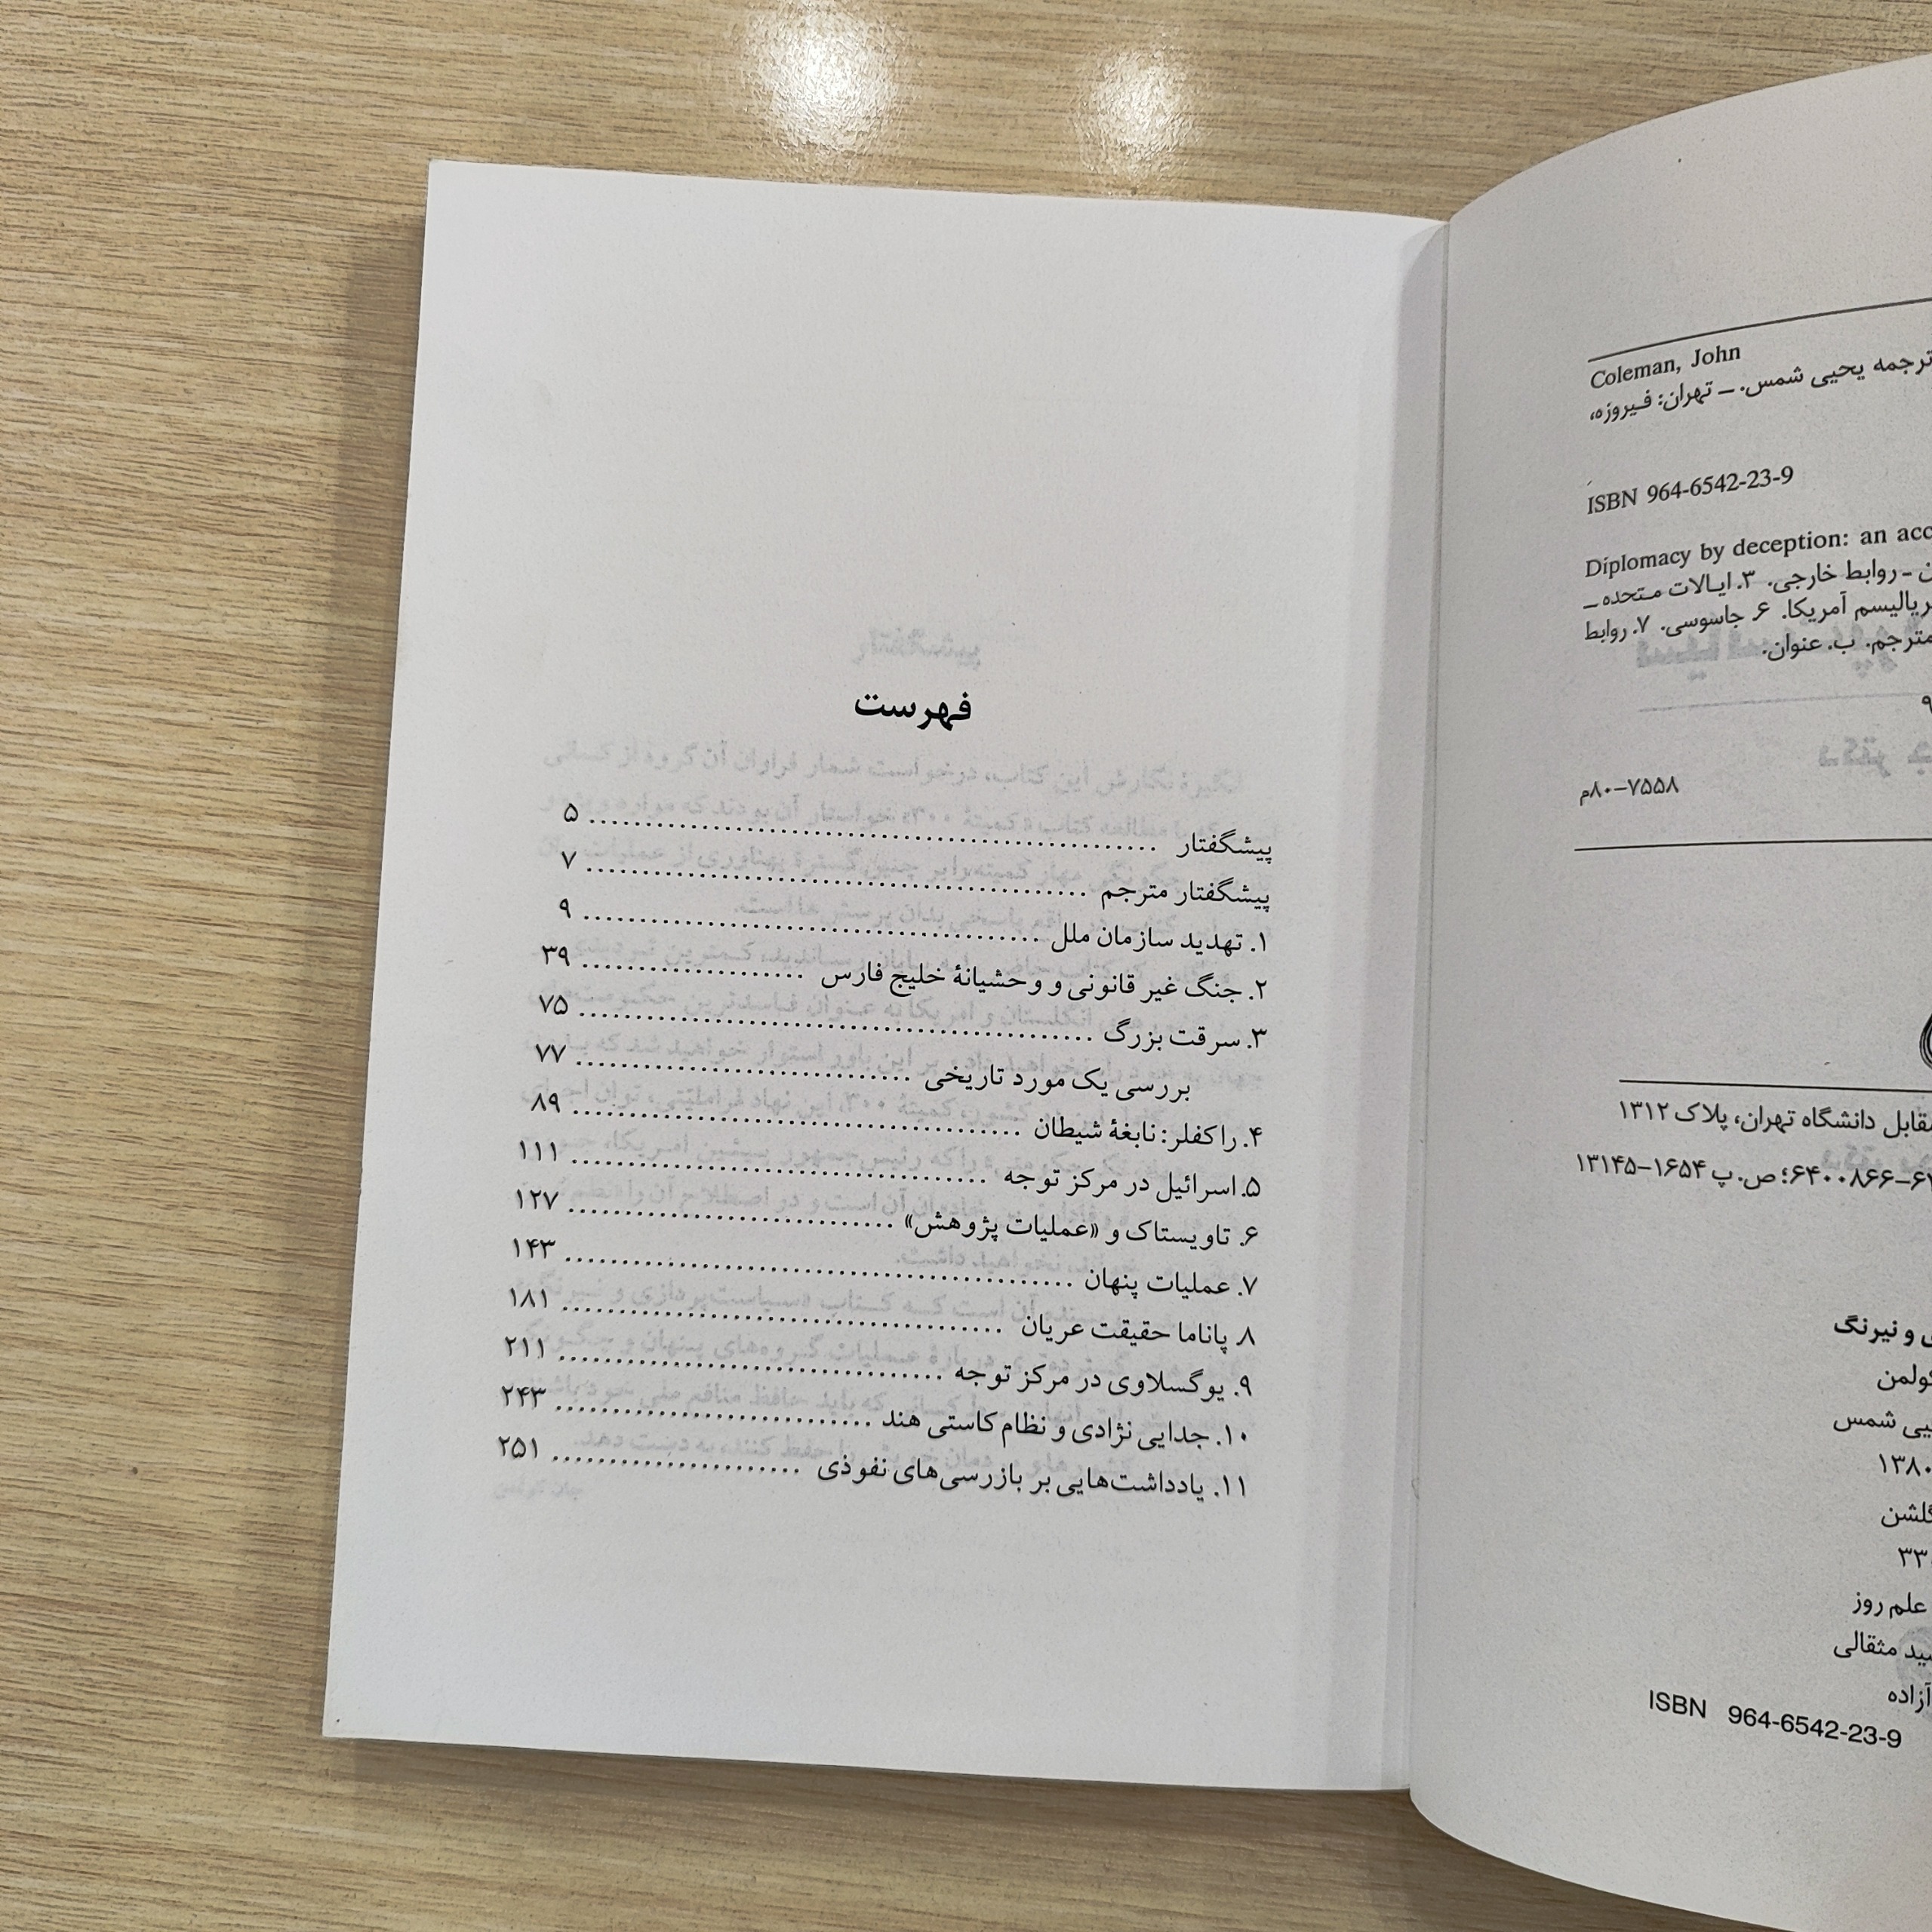 Coleman, John
ترجمه یحیی شمس. ــ تهران: فیروزه،
ISBN 964-6542-23-9
Diplomacy by deception: an
ــ روابط خارجی. ۳. ایالات متحده ــ
آمریکا. ۶. جاسوسی. ۷. روابط
مترجم. ب. عنوان.
۹
۸۰-۷۵۵۸م
مقابل دانشگاه تهران، پلاک ۱۳۱۲
۶۴۰۰۸۶۶؛ ص. پ ۱۶۵۴-۱۳۱۴۵
و نیرنگ
کولمن
شمس
۱۳۸۰
گلشن
علم روز
مثقالی
آزاده
ISBN 964-6542-23-9
فهرست
پیشگفتار ........ ۵
پیشگفتار مترجم ........ ۷
۱. تهدید سازمان ملل ........ ۹
۲. جنگ غیر قانونی و وحشیانهٔ خلیج فارس ........ ۳۹
۳. سرقت بزرگ ........ ۷۵
بررسی یک مورد تاریخی ........ ۷۷
۴. راکفلر: نابغهٔ شیطان ........ ۸۹
۵. اسرائیل در مرکز توجه ........ ۱۱۱
۶. تاویستاک و «عملیات پژوهش» ........ ۱۲۷
۷. عملیات پنهان ........ ۱۴۳
۸. پاناما حقیقت عریان ........ ۱۸۱
۹. یوگسلاوی در مرکز توجه ........ ۲۱۱
۱۰. جدایی نژادی و نظام کاستی هند ........ ۲۴۳
۱۱. یادداشت‌هایی بر بازرسی‌های نفوذی ........ ۲۵۱